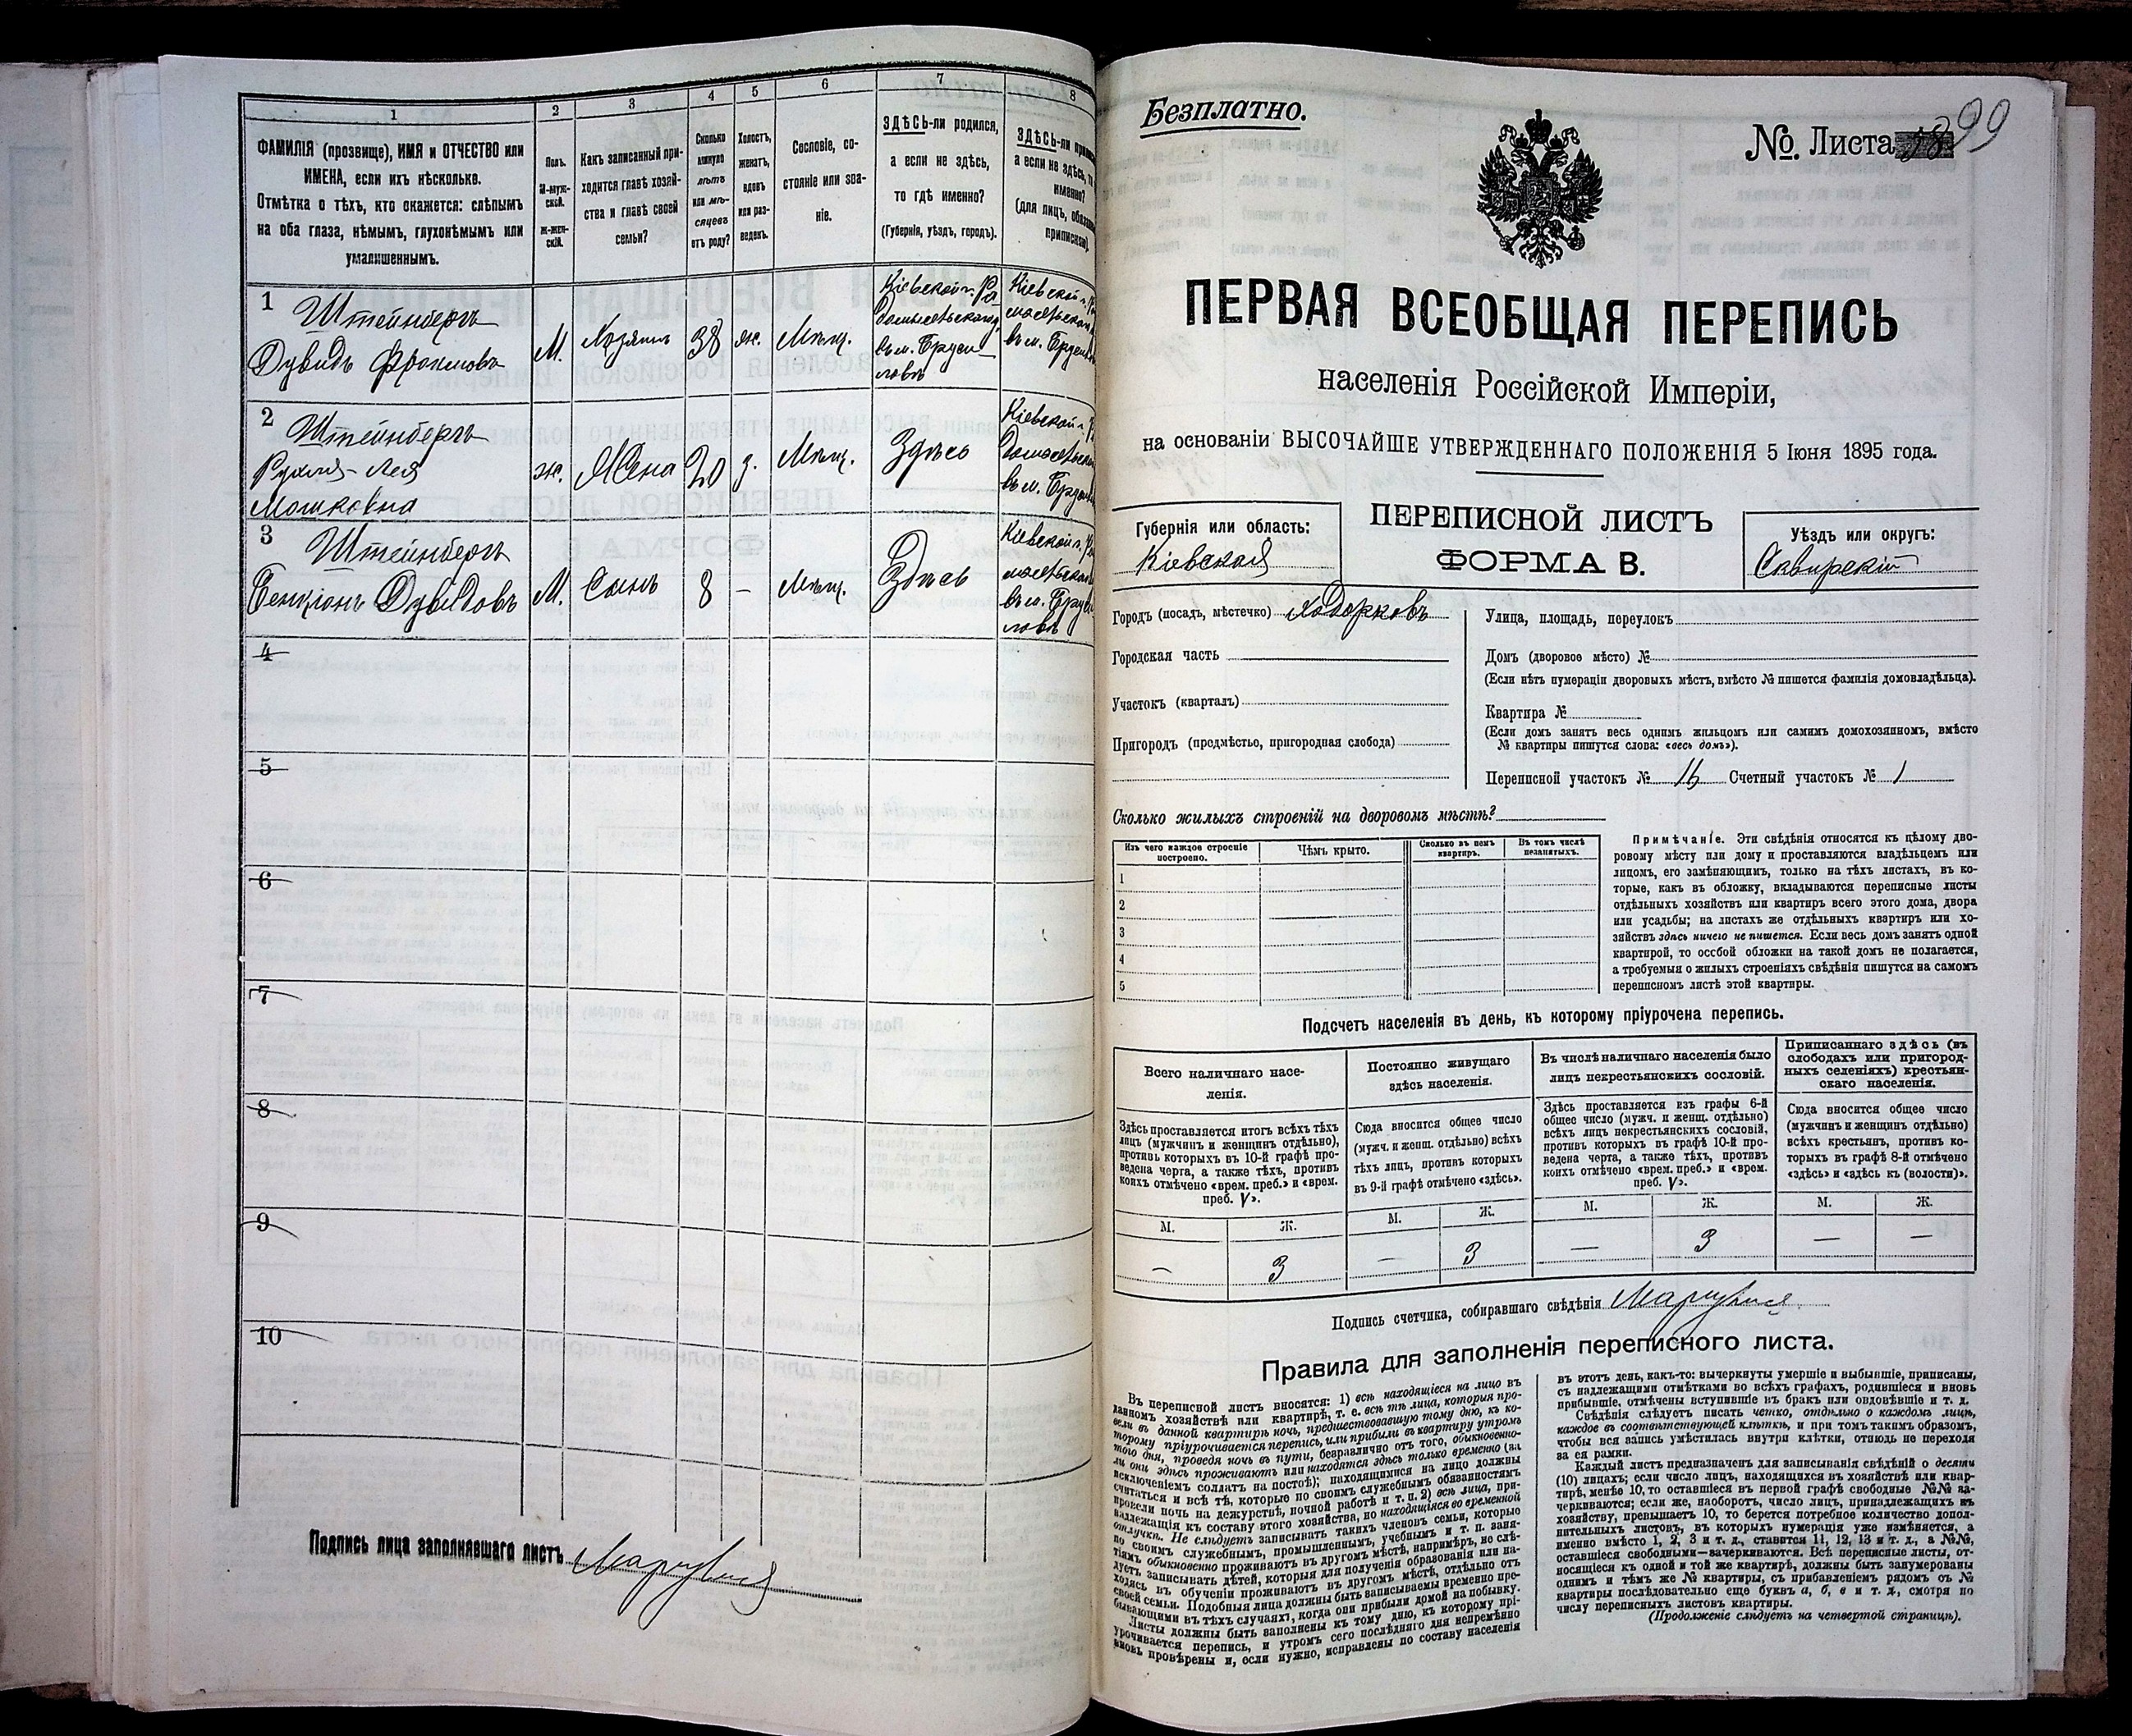 1
2
3
4
5
6
7
8
ФАМИЛІЯ (прозвище), ИМЯ и ОТЧЕСТВО или
ИМЕНА, если ихъ нѣсколько.
Отмѣтка о тѣхъ, кто окажется: слѣпымъ
на оба глаза, нѣмымъ, глухонѣмымъ или
умалишеннымъ.
Полъ.
М-муж-
ской.
ж-жен-
скій.
Какъ записанный при-
ходится главѣ хозяй-
ства и главѣ своей
семьи?
Сколько
минуло
лѣтъ
или мѣ-
сяцевъ
отъ роду?
Холостъ,
женатъ,
вдовъ
или раз-
веденъ.
Сословіе, со-
стояніе или зва-
ніе.
ЗДѢСЬ-ли родился,
а если не здѣсь,
то гдѣ именно?
(Губернія, уѣздъ, городъ).
ЗДѢСЬ-ли
а если не здѣсь,
именно?
(для лицъ,
1
Штейнбергъ
Дувидъ Фроимовъ
М.
Хозяинъ
38
ж.
Мѣщ.
Кіевской г. Ра
домысльскаго у.
въ м. Бруси-
ловѣ
Кіевской г.
въ м.
2
Штейнбергъ
Рухля-Лея
Мошковна
ж.
Жена
20
з.
Мѣщ.
Здѣсь
Кіевской г.
въ м.
3
Штейнбергъ
Бенціонъ Дувидовъ
М.
Сынъ
8
–
Мѣщ.
Здѣсь
Кіевской г.
въ м.
ловѣ
4
5
6
7
8
9
10
Подпись лица заполнявшаго листъ
Безплатно.
№. Листа 99
ПЕРВАЯ ВСЕОБЩАЯ ПЕРЕПИСЬ
населенія Россійской Имперіи,
на основаніи ВЫСОЧАЙШЕ УТВЕРЖДЕННАГО ПОЛОЖЕНІЯ 5 Іюня 1895 года.
Губернія или область:
Кіевская
ПЕРЕПИСНОЙ ЛИСТЪ
ФОРМА В.
Уѣздъ или округъ:
Сквирскій
Городъ (посадъ, мѣстечко) Ходорковъ
Городская часть
Участокъ (кварталъ)
Пригородъ (предмѣстье, пригородная слобода)
Улица, площадь, переулокъ
Домъ (дворовое мѣсто) №
(Если нѣтъ нумераціи дворовыхъ мѣстъ, вмѣсто № пишется фамилія домовладѣльца).
Квартира №
(Если домъ занятъ весь однимъ жильцомъ или самимъ домохозяиномъ, вмѣсто
№ квартиры пишутся слова: «весь домъ»).
Переписной участокъ № Счетный участокъ № 1
Сколько жилыхъ строеній на дворовомъ мѣстѣ?
Изъ чего каждое строеніе
построено.
Чѣмъ крыто.
Сколько въ немъ
квартиръ.
Въ томъ числѣ
незанятыхъ.
1
2
3
4
5
Примѣчаніе. Эти свѣдѣнія относятся къ цѣлому дво-
ровому мѣсту или дому и проставляются владѣльцемъ или
лицомъ, его замѣняющимъ, только на тѣхъ листахъ, въ ко-
торые, какъ въ обложку, вкладываются переписные листы
отдѣльныхъ хозяйствъ или квартиръ всего этого дома, двора
или усадьбы; на листахъ же отдѣльныхъ квартиръ или хо-
зяйствъ здѣсь ничего не пишется. Если весь домъ занятъ одной
квартирой, то особой обложки на такой домъ не полагается,
а требуемыя о жилыхъ строеніяхъ свѣдѣнія пишутся на самомъ
переписномъ листѣ этой квартиры.
Подсчетъ населенія въ день, къ которому пріурочена перепись.
Всего наличнаго насе-
ленія.
Постоянно живущаго
здѣсь населенія.
Въ числѣ наличнаго населенія было
лицъ некрестьянскихъ сословій.
Приписаннаго здѣсь (въ
слободахъ или пригород-
ныхъ селеніяхъ) крестьян-
скаго населенія.
Здѣсь проставляется итогъ всѣхъ тѣхъ
лицъ (мужчинъ и женщинъ отдѣльно),
противъ которыхъ въ 10-й графѣ про-
ведена черта, а также тѣхъ, противъ
коихъ отмѣчено «врем. преб.» и «врем.
преб. V».
Сюда вносится общее число
(мужч. и женщ. отдѣльно) всѣхъ
тѣхъ лицъ, противъ которыхъ
въ 9-й графѣ отмѣчено «здѣсь».
Здѣсь проставляется изъ графы 6-й
общее число (мужч. и женщ. отдѣльно)
всѣхъ лицъ некрестьянскихъ сословій,
противъ которыхъ въ графѣ 10-й про-
ведена черта, а также тѣхъ, противъ
коихъ отмѣчено «врем. преб.» и «врем.
преб. V».
Сюда вносится общее число
(мужчинъ и женщинъ отдѣльно)
всѣхъ крестьянъ, противъ ко-
торыхъ въ графѣ 8-й отмѣчено
«здѣсь» и «здѣсь къ (волости)».
М. Ж. М. Ж. М. Ж. М. Ж.
— 3 — 3 — 3 — —
Подпись счетчика, собиравшаго свѣдѣнія
Правила для заполненія переписного листа.
Въ переписной листъ вносятся: 1) всѣ находящіеся на лицо въ
данномъ хозяйствѣ или квартирѣ, т. е. всѣ тѣ лица, которыя про-
вели въ данной квартирѣ ночь, предшествовавшую тому дню, къ ко-
торому пріурочивается перепись, или прибыли въ квартиру утромъ
того дня, проведя ночь въ пути, безразлично отъ того, обыкновенно-
ли они здѣсь проживаютъ или находятся здѣсь только временно (за
исключеніемъ солдатъ на постоѣ); находящимися на лицо должны
считаться и всѣ тѣ, которые по своимъ служебнымъ обязанностямъ
провели ночь на дежурствѣ, ночной работѣ и т. п. 2) всѣ лица, при-
надлежащія къ составу этого хозяйства, но находящіяся во временной
отлучкѣ. Не слѣдуетъ записывать такихъ членовъ семьи, которые
по своимъ служебнымъ, промышленнымъ, учебнымъ и т. п. заня-
тіямъ обыкновенно проживаютъ въ другомъ мѣстѣ, напримѣръ, не слѣ-
дуетъ записывать дѣтей, которыя для полученія образованія или на-
ходясь въ обученіи проживаютъ въ другомъ мѣстѣ, отдѣльно отъ
своей семьи. Подобныя лица должны быть записываемы временно пре-
бывающими въ тѣхъ случаяхъ, когда они прибыли домой на побывку.
Листы должны быть заполнены къ тому дню, къ которому прі-
урочивается перепись, и утромъ сего послѣдняго дня непремѣнно
вновь провѣрены и, если нужно, исправлены по составу населенія
въ этотъ день, какъ-то: вычеркнуты умершіе и выбывшіе, приписаны,
съ надлежащими отмѣтками во всѣхъ графахъ, родившіеся и вновь
прибывшіе, отмѣчены вступившіе въ бракъ или овдовѣвшіе и т. д.
Свѣдѣнія слѣдуетъ писать четко, отдѣльно о каждомъ лицѣ,
каждое въ соотвѣтствующей клѣткѣ, и при томъ такимъ образомъ,
чтобы вся запись умѣстилась внутри клѣтки, отнюдь не переходя
за ея рамки.
Каждый листъ предназначенъ для записыванія свѣдѣній о десяти
(10) лицахъ; если число лицъ, находящихся въ хозяйствѣ или квар-
тирѣ, менѣе 10, то оставшіеся въ первой графѣ свободные №№ за-
черкиваются; если же, наоборотъ, число лицъ, принадлежащихъ къ
хозяйству, превышаетъ 10, то берется потребное количество допол-
нительныхъ листовъ, въ которыхъ нумерація уже измѣняется, а
именно вмѣсто 1, 2, 3 и т. д., ставится 11, 12, 13 и т. д., а №№,
оставшіеся свободными—зачеркиваются. Всѣ переписные листы, от-
носящіеся къ одной и той же квартирѣ, должны быть занумерованы
однимъ и тѣмъ же № квартиры, съ прибавленіемъ рядомъ съ №
квартиры послѣдовательно еще буквъ а, б, в и т. д., смотря по
числу переписныхъ листовъ квартиры.
(Продолженіе слѣдуетъ на четвертой страницѣ).